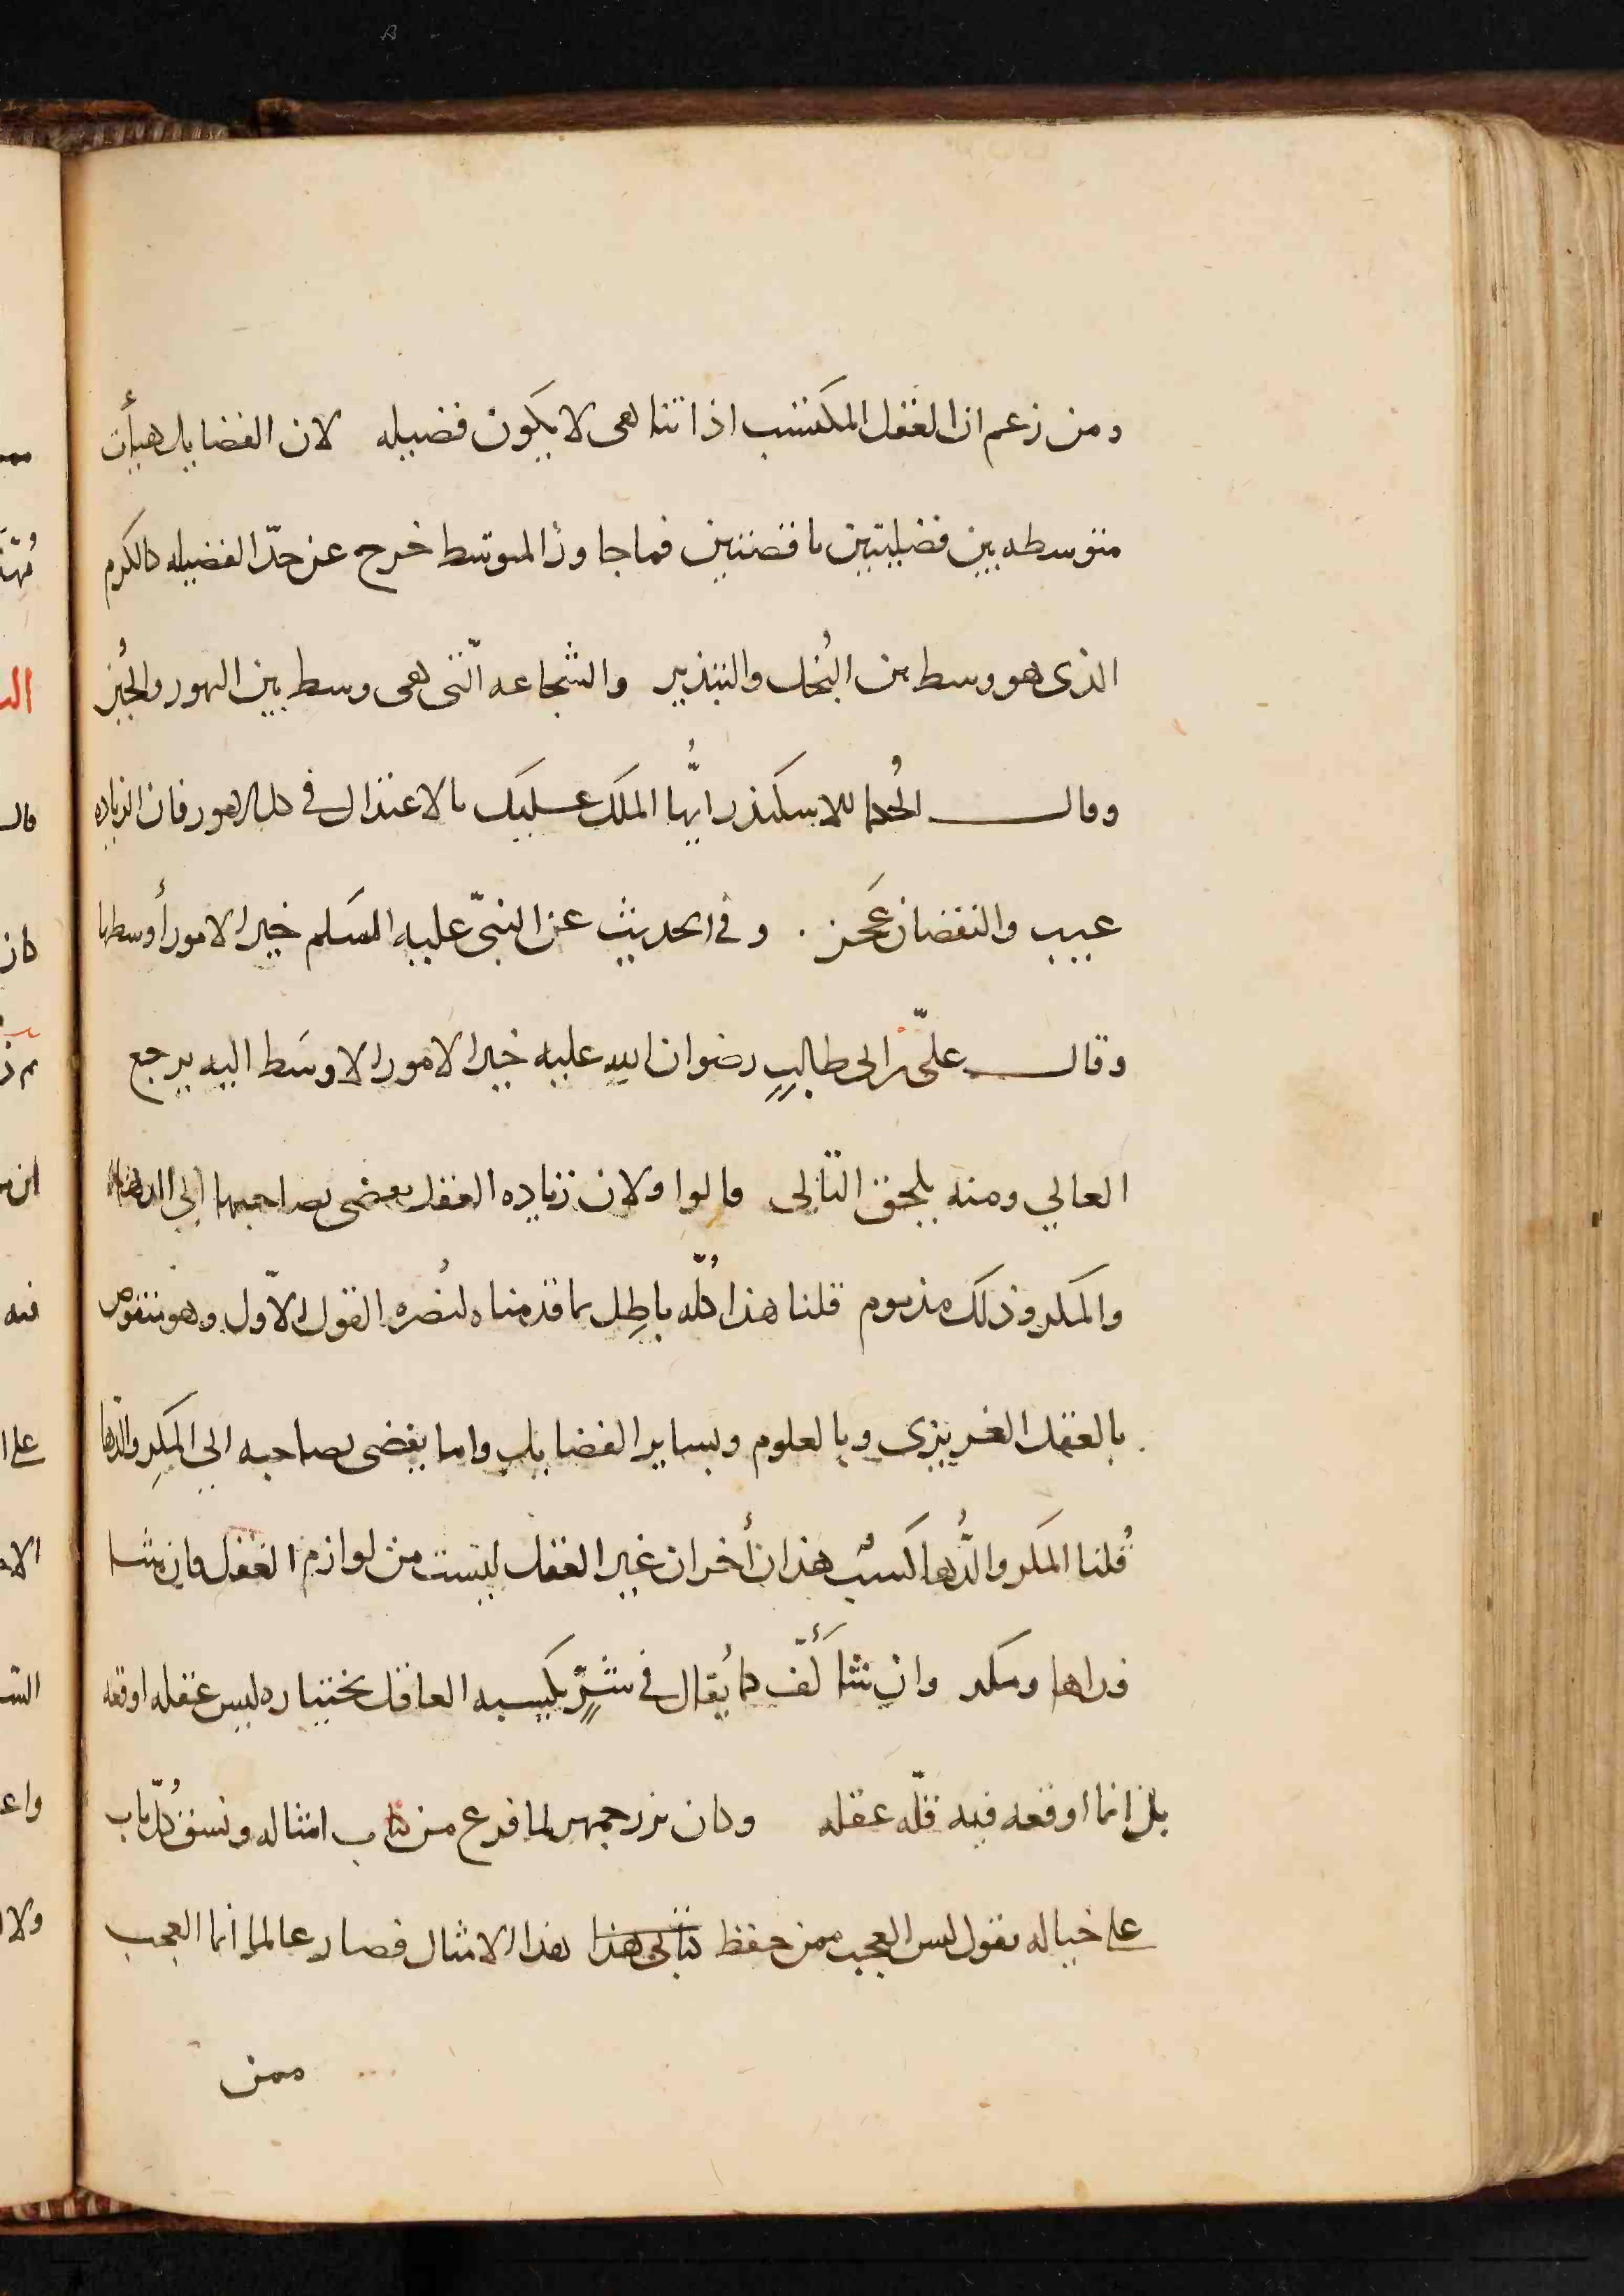 ومن زعم ان العقل المكتسب اذا تناهى لا يكون فضيله لان الفضايل هيأت
متوسطه بين فضيلتين ناقصتين فما جاوز المتوسط خرج عن حدّ الفضيله كالكرم
الذى هو وسط بين البُخل والتبذير والشجاعه الّتى هى وسط بين التهور والجُبن
وقال الحُكما للاسكندر ايُّها الملك عليك بالاعتدال فى كل الامور فان الزياده
عيب والنقصان عَجز . وفى الحديث عن النبىّ عليه السلم خير الامور أوسطها
وقال علىّ بن ابى طالبٍ رضوان الله عليه خير الامور الاوسَط اليه يرجع
العالي ومنه يلحق التالى قالوا ولان زياده العقل تفضى بصاحبها الى الدها
والمكر وذلك مذموم قلنا هذا كُلّه باطِل بما قدمناه لنُصره القول الاوّل وهو منقوص
بالعقل الغريزى وبالعلوم وبساير الفضايل واما يفضى بصاحبه الى المكرِ والدّها
قُلنا المكر والدُّها كسبٌ هذان أخران غير العقل ليست من لوازم العقل فان شا
فدراها ومكر وان شا كَفّ كما يُقال فى شرٍّ يكسبه العاقل بختياره ليس عقله اوقعه
بل انما اوقعه فيه قلّه عقله وكان بزرجمهر لما فرغ من كتاب امثاله ونسق كُلّ باب
على حياله يقول ليس العجب ممن حفظ كتابى هذا هذا الامثال فصار عالما انما العجب
ممن